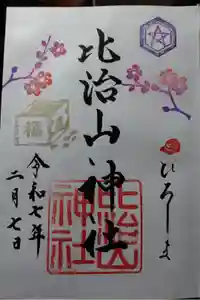 比治山神社
ひろしま
令和七年
二月七日
福
比治山
神社